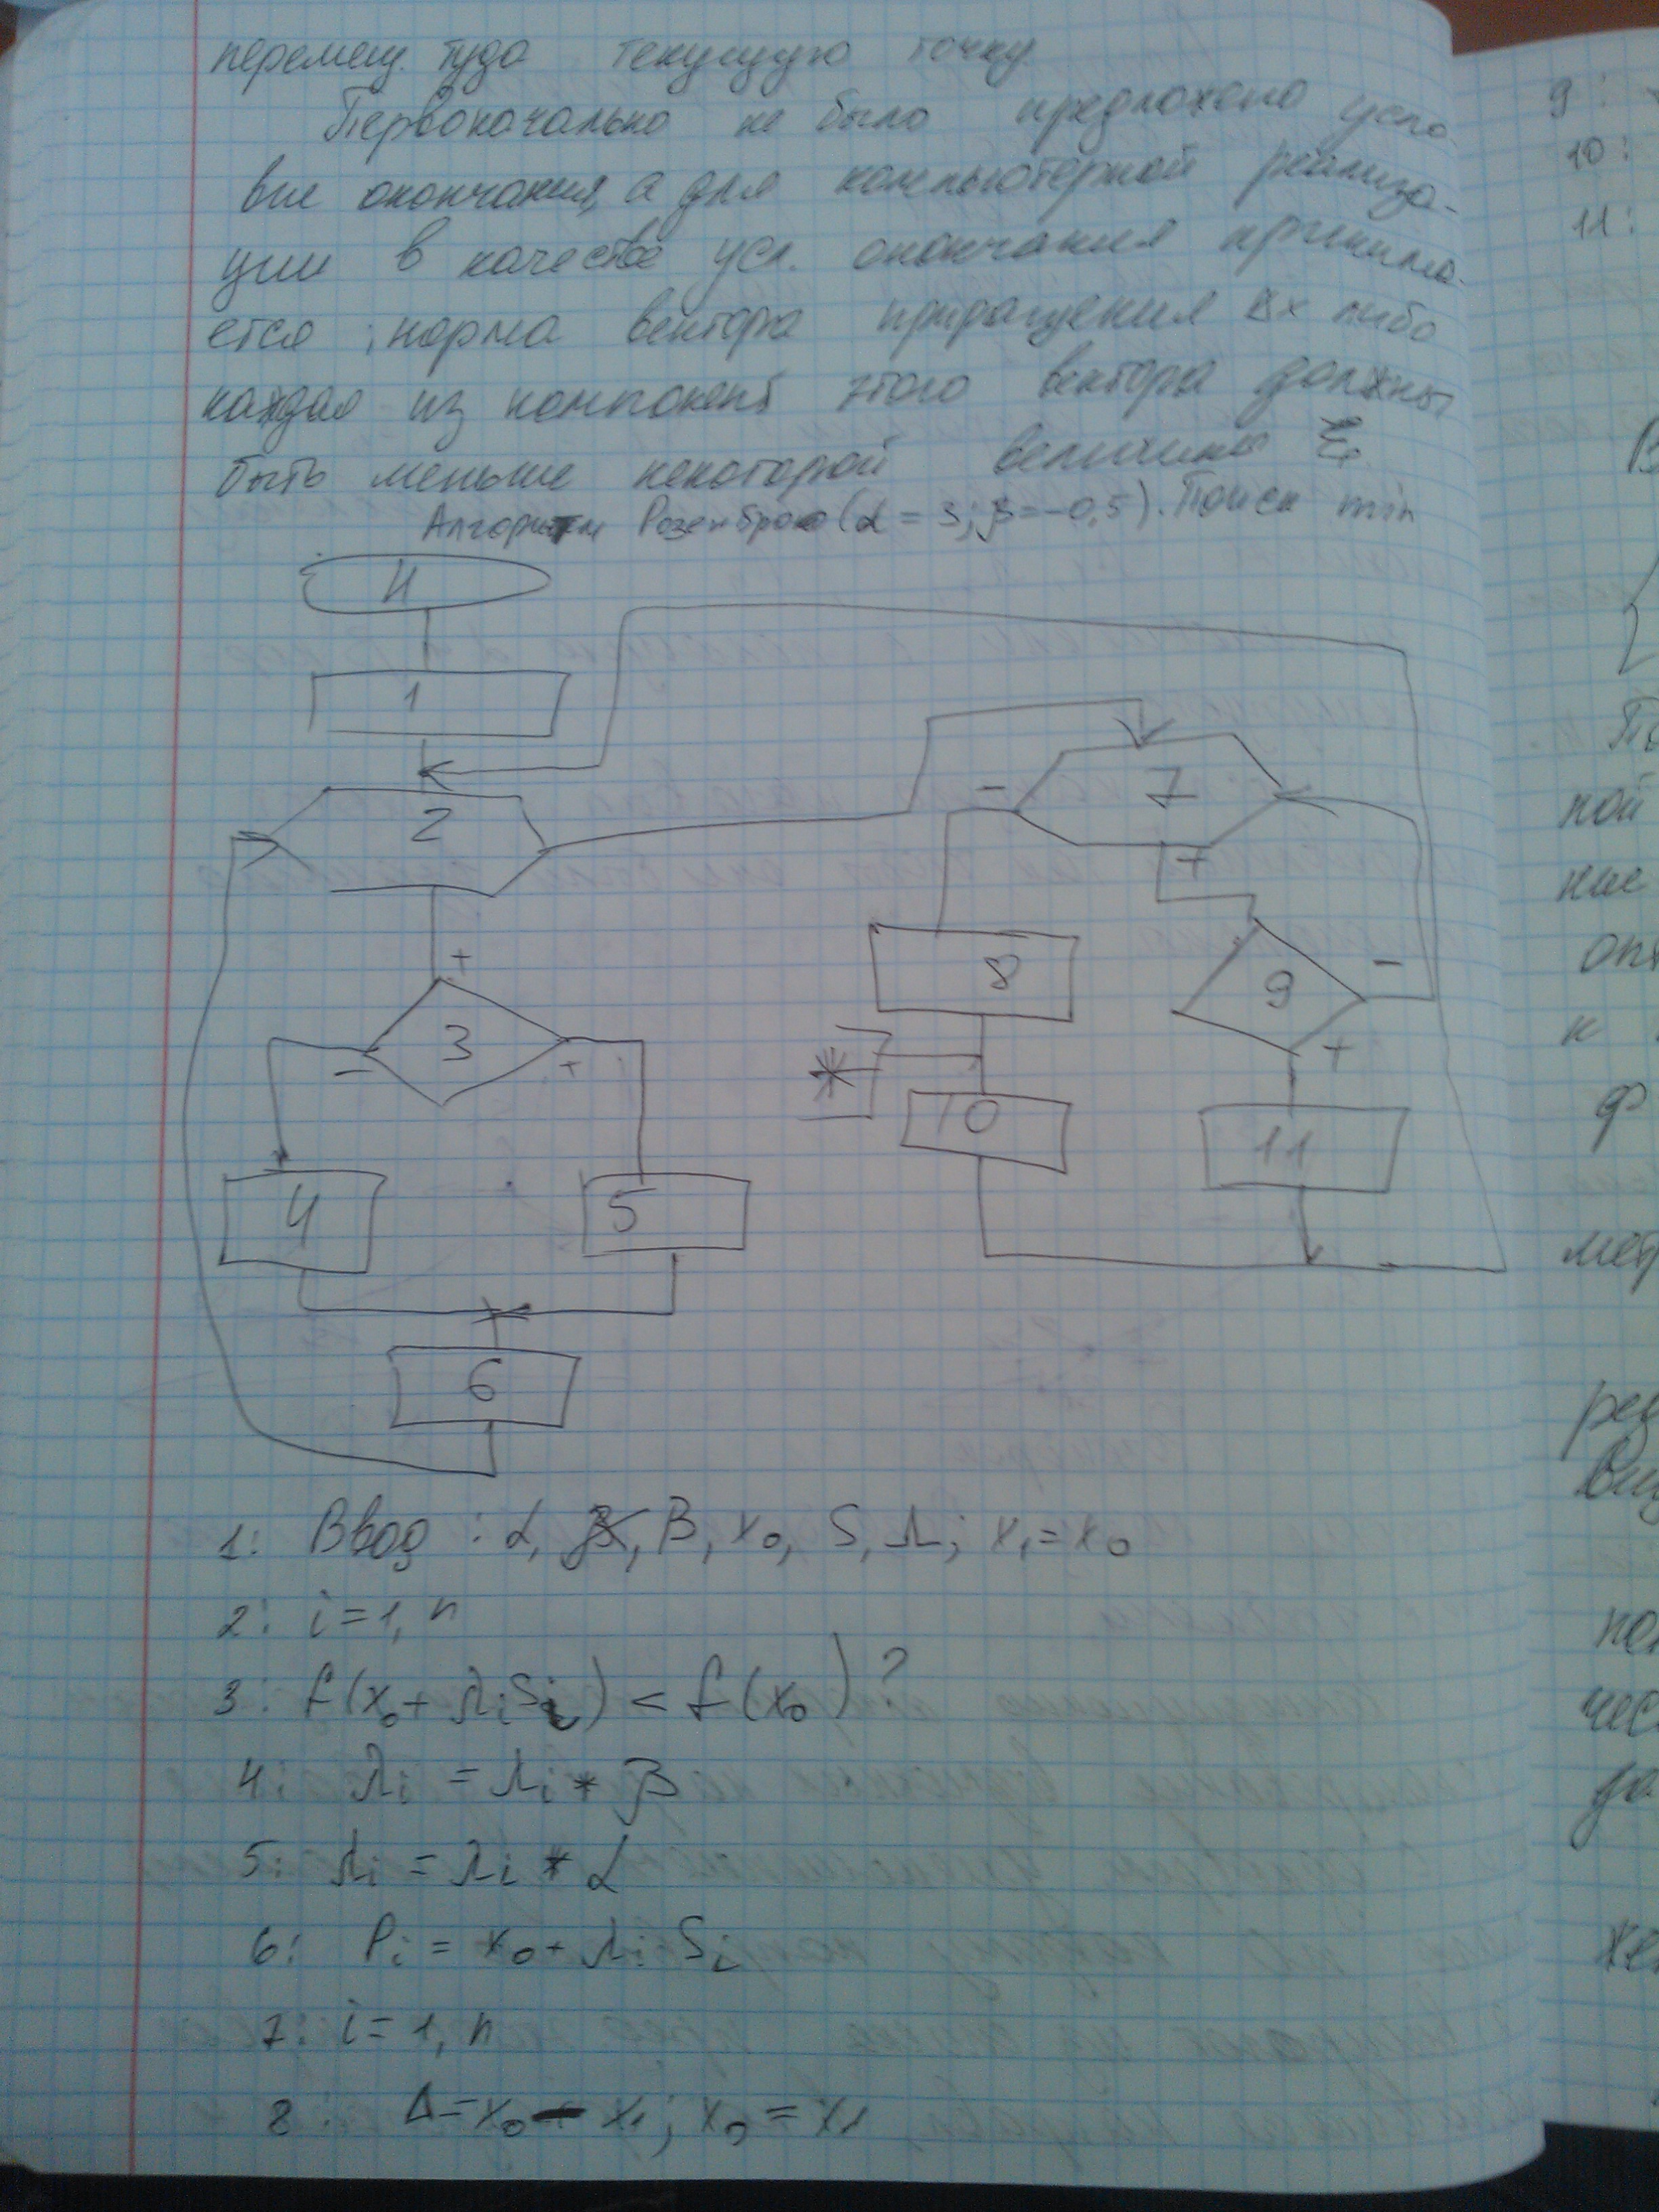 перемещ. туда текущую точку
Первоначально не было предложено усло-
вие окончания, а для компьютерной реализа-
ции в качестве усл. окончания принима-
ется: норма вектора приращения Δx либо
каждая из компонент этого вектора должны
быть меньше некоторой величины ξ.
Алгоритм Розенброка (α = 3; β = -0,5). Поиск min
Н
1
2
+
3
-
+
4
5
6
7
-
+
8
9
-
+
*
10
11
1: Ввод: α, β, x₀, S, Λ; x₁ = x₀
2: i = 1, n
3: f(x₀ + λᵢSᵢ) < f(x₀)?
4: λᵢ = λᵢ * β
5: λᵢ = λᵢ * α
6: Pᵢ = x₀ + λᵢSᵢ
7: i = 1, n
8: Δ = x₀ - x₁; x₀ = x₁
9:
10:
11: